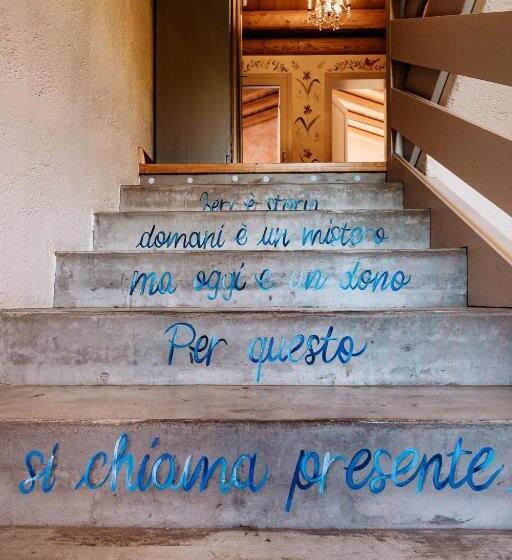 Ieri è storia
domani è un mistero
ma oggi è un dono
Per questo
si chiama presente